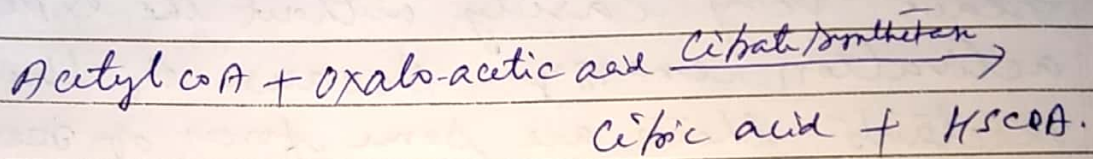 Acetyl coA + oxalo-acetic acid Citrate synthetase →
Citric acid + HSCOA.